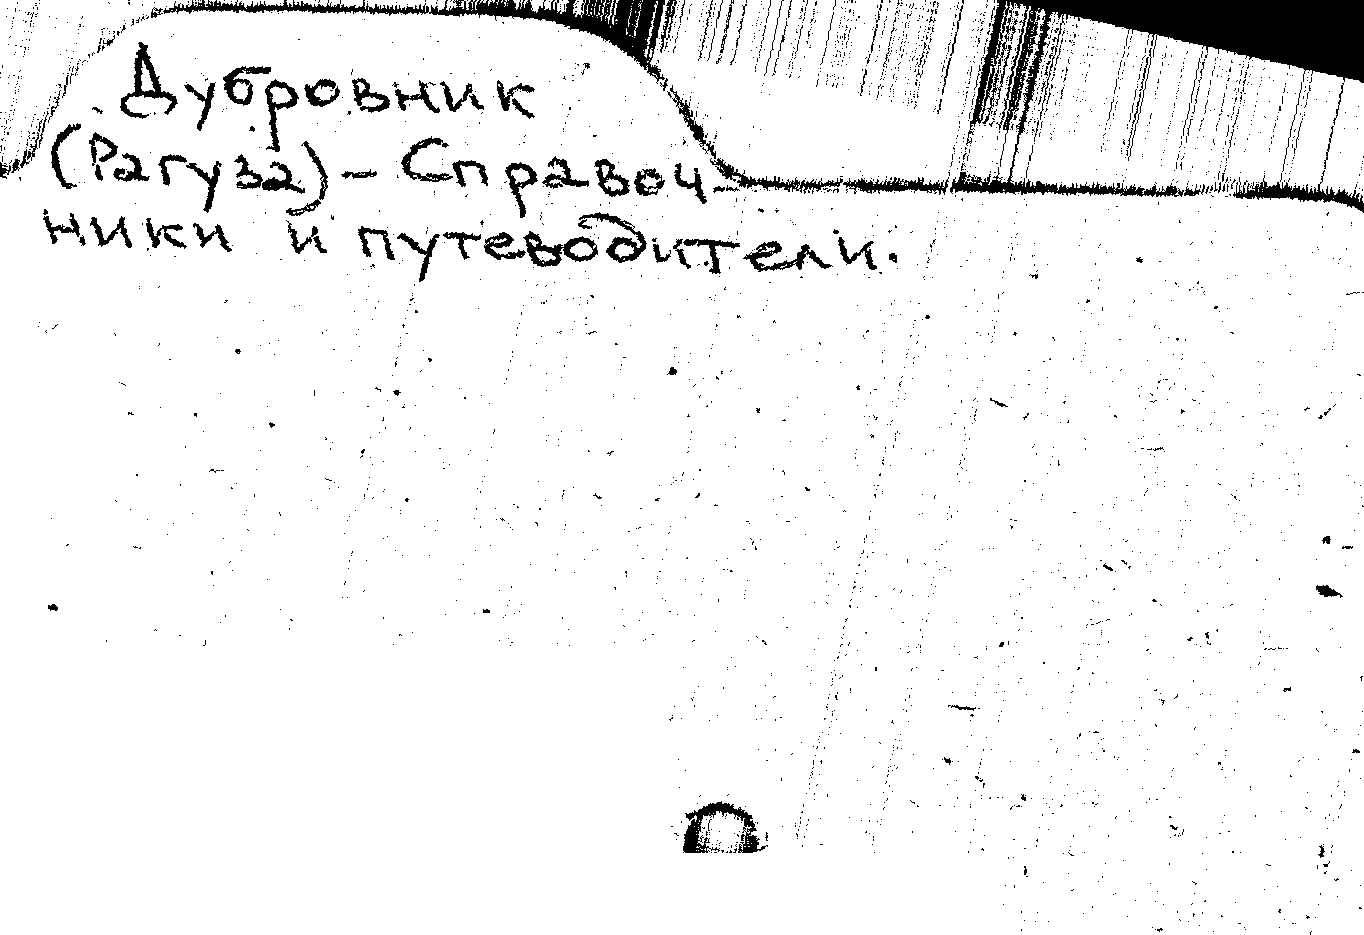 Дубровник
(Рагуза) - Справоч-
ники и путеводители.